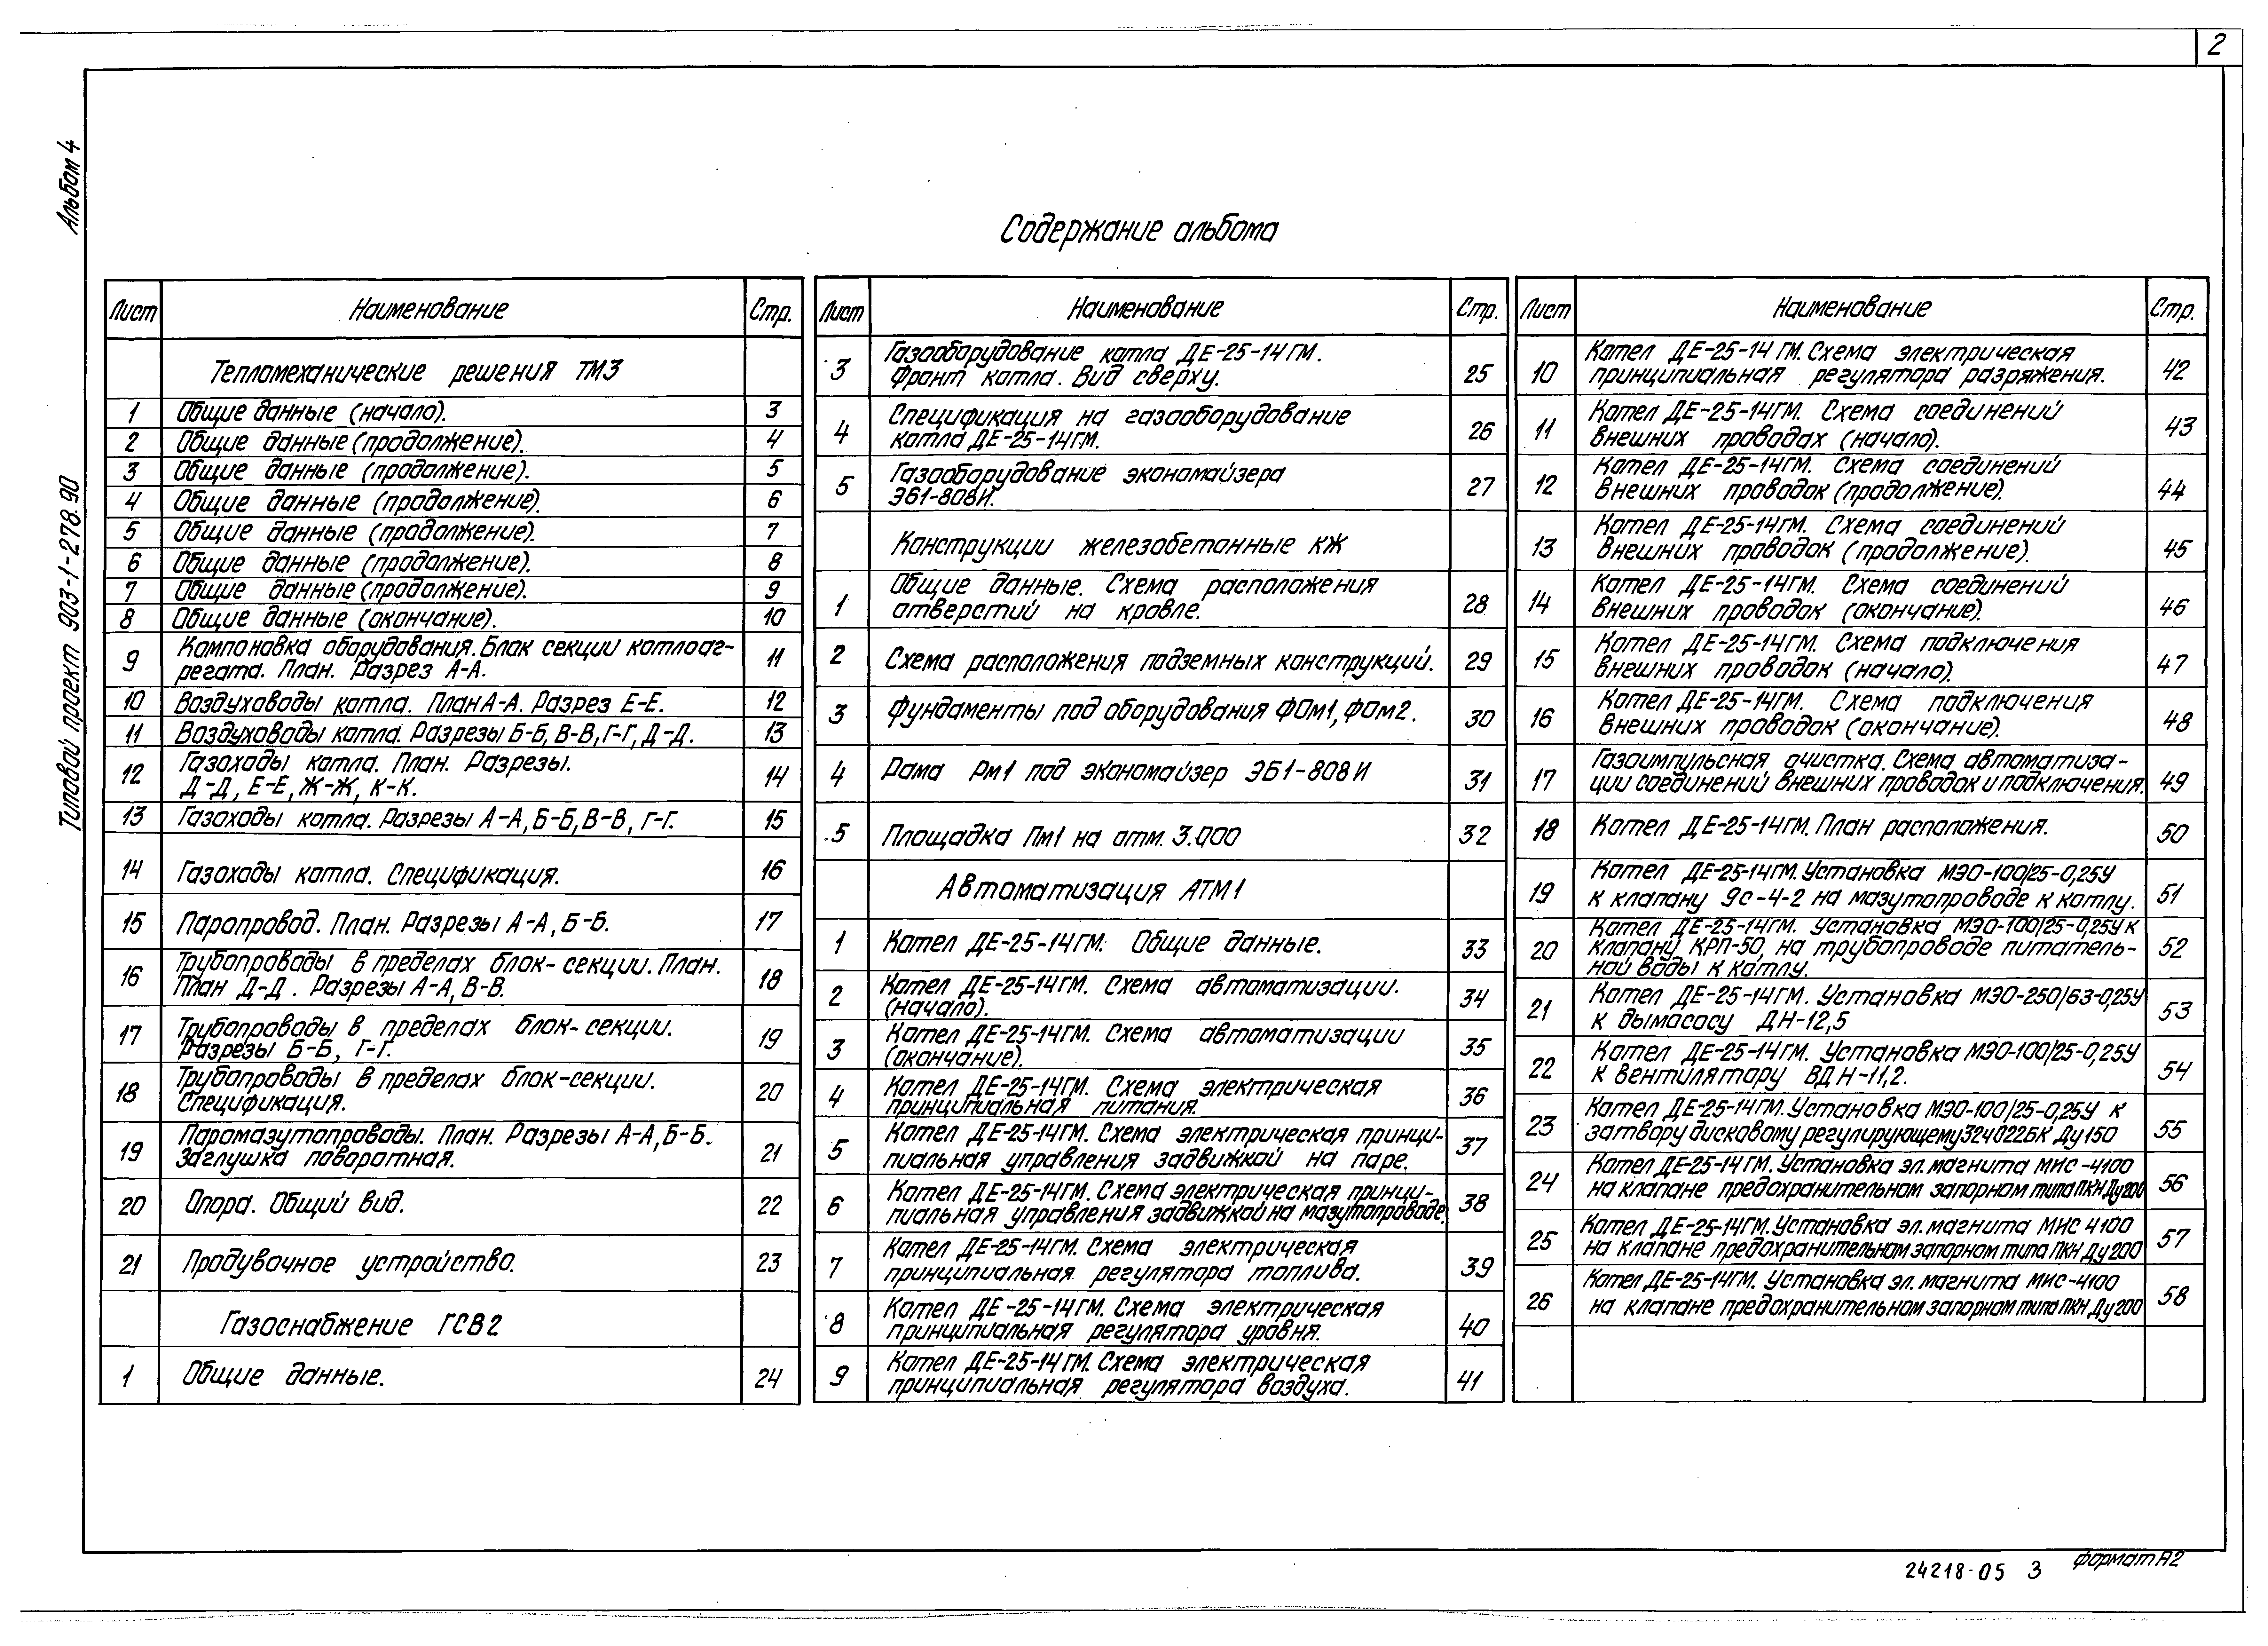 2
Альбом 4
Типовой проект 903-1-278.90
Содержание альбома
Лист Наименование Стр.
Тепломеханические решения ТМ3
1 Общие данные (начало). 3
2 Общие данные (продолжение). 4
3 Общие данные (продолжение). 5
4 Общие данные (продолжение). 6
5 Общие данные (продолжение). 7
6 Общие данные (продолжение). 8
7 Общие данные (продолжение). 9
8 Общие данные (окончание). 10
9 Компоновка оборудования. Блок секции котлоаг-
регата. План. Разрез А-А. 11
10 Воздуховоды котла. План А-А. Разрез Е-Е. 12
11 Воздуховоды котла. Разрезы Б-Б, В-В, Г-Г, Д-Д. 13
12 Газоходы котла. План. Разрезы.
Д-Д, Е-Е, Ж-Ж, К-К. 14
13 Газоходы котла. Разрезы А-А, Б-Б, В-В, Г-Г. 15
14 Газоходы котла. Спецификация. 16
15 Паропровод. План. Разрезы А-А, Б-Б. 17
16 Трубопроводы в пределах блок-секции. План.
План Д-Д. Разрезы А-А, В-В. 18
17 Трубопроводы в пределах блок-секции.
Разрезы Б-Б, Г-Г. 19
18 Трубопроводы в пределах блок-секции.
Спецификация. 20
19 Паромазутопроводы. План. Разрезы А-А, Б-Б.
Заглушка поворотная. 21
20 Опора. Общий вид. 22
21 Продувочное устройство. 23
Газоснабжение ГСВ2
1 Общие данные. 24
Лист Наименование Стр.
3 Газооборудование котла ДЕ-25-14ГМ.
Фронт котла. Вид сверху. 25
4 Спецификация на газооборудование
котла ДЕ-25-14ГМ. 26
5 Газооборудование экономайзера
ЭБ1-808И. 27
Конструкции железобетонные КЖ
1 Общие данные. Схема расположения
отверстий на кровле. 28
2 Схема расположения подземных конструкций. 29
3 Фундаменты под оборудования ФОм1, ФОм2. 30
4 Рама Рм1 под экономайзер ЭБ1-808И 31
5 Площадка Пм1 на отм. 3.000 32
Автоматизация АТМ1
1 Котел ДЕ-25-14ГМ. Общие данные. 33
2 Котел ДЕ-25-14ГМ. Схема автоматизации.
(начало). 34
3 Котел ДЕ-25-14ГМ. Схема автоматизации
(окончание). 35
4 Котел ДЕ-25-14ГМ. Схема электрическая
принципиальная питания. 36
5 Котел ДЕ-25-14ГМ. Схема электрическая принци-
пиальная управления задвижкой на паре. 37
6 Котел ДЕ-25-14ГМ. Схема электрическая принци-
пиальная управления задвижкой на мазутопроводе. 38
7 Котел ДЕ-25-14ГМ. Схема электрическая
принципиальная регулятора топлива. 39
8 Котел ДЕ-25-14ГМ. Схема электрическая
принципиальная регулятора уровня. 40
9 Котел ДЕ-25-14ГМ. Схема электрическая
принципиальная регулятора воздуха. 41
Лист Наименование Стр.
10 Котел ДЕ-25-14ГМ. Схема электрическая
принципиальная регулятора разряжения. 42
11 Котел ДЕ-25-14ГМ. Схема соединений
внешних проводах (начало). 43
12 Котел ДЕ-25-14ГМ. Схема соединений
внешних проводок (продолжение). 44
13 Котел ДЕ-25-14ГМ. Схема соединений
внешних проводок (продолжение). 45
14 Котел ДЕ-25-14ГМ. Схема соединений
внешних проводок (окончание). 46
15 Котел ДЕ-25-14ГМ. Схема подключения
внешних проводок (начало). 47
16 Котел ДЕ-25-14ГМ. Схема подключения
внешних проводок (окончание). 48
17 Газоимпульсная очистка. Схема автоматиза-
ции соединений внешних проводок и подключения. 49
18 Котел ДЕ-25-14ГМ. План расположения. 50
19 Котел ДЕ-25-14ГМ. Установка МЭО-100/25-0,25У
к клапану 9с-4-2 на мазутопроводе к котлу. 51
20 Котел ДЕ-25-14ГМ. Установка МЭО-100/25-0,25У к
клапану КРП-50, на трубопроводе питатель-
ной воды к котлу. 52
21 Котел ДЕ-25-14ГМ. Установка МЭО-250/63-0,25У
к дымасосу ДН-12,5 53
22 Котел ДЕ-25-14ГМ. Установка МЭО-100/25-0,25У
к вентилятору ВДН-11,2. 54
23 Котел ДЕ-25-14ГМ. Установка МЭО-100/25-0,25У к
затвору дисковому регулирующему 32ч022БК Ду150 55
24 Котел ДЕ-25-14ГМ. Установка эл. магнита МИС-4100
на клапане предохранительном запорном типа ПКН Ду200 56
25 Котел ДЕ-25-14ГМ. Установка эл. магнита МИС 4100
на клапане предохранительном запорном типа ПКН Ду200 57
26 Котел ДЕ-25-14ГМ. Установка эл. магнита МИС-4100
на клапане предохранительном запорном типа ПКН Ду200 58
24218-05 3 формат А2